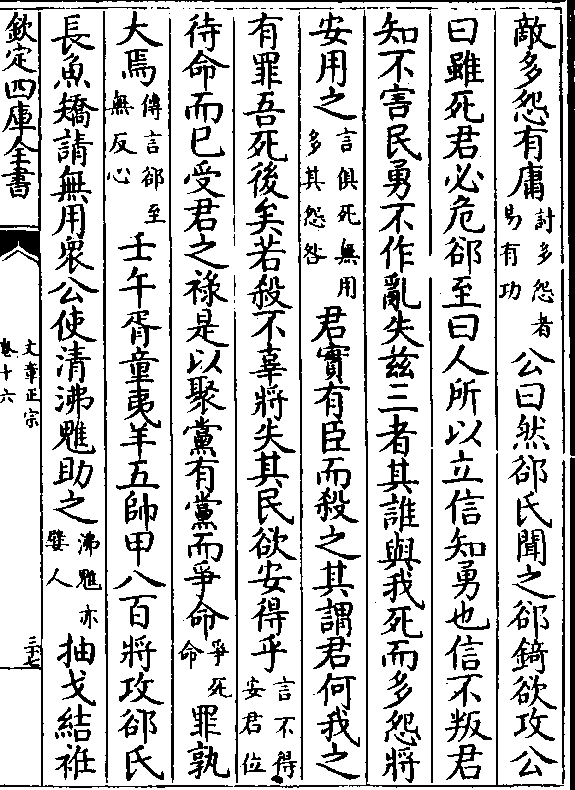 敵多怨有庸討多怨者易有功公曰然郤氏聞之郤錡欲攻公
曰雖死君必危郤至曰人所以立信知勇也信不叛君
知不害民勇不作亂失兹三者其誰與我死而多怨將
安用之言俱死無用多其怨咎君實有臣而殺之其謂君何我之
有罪吾死後矣若殺不辜將失其民欲安得乎言不得安君位
待命而已受君之祿是以聚黨有黨而爭命爭死命罪孰
大焉傳言郤至無反心壬午胥童夷羊五帥甲八百將攻郤氏
長魚矯請無用衆公使清沸魋助之沸魋亦嬖人抽戈結衽
欽定四庫全書
文章正宗
卷十六
三十七